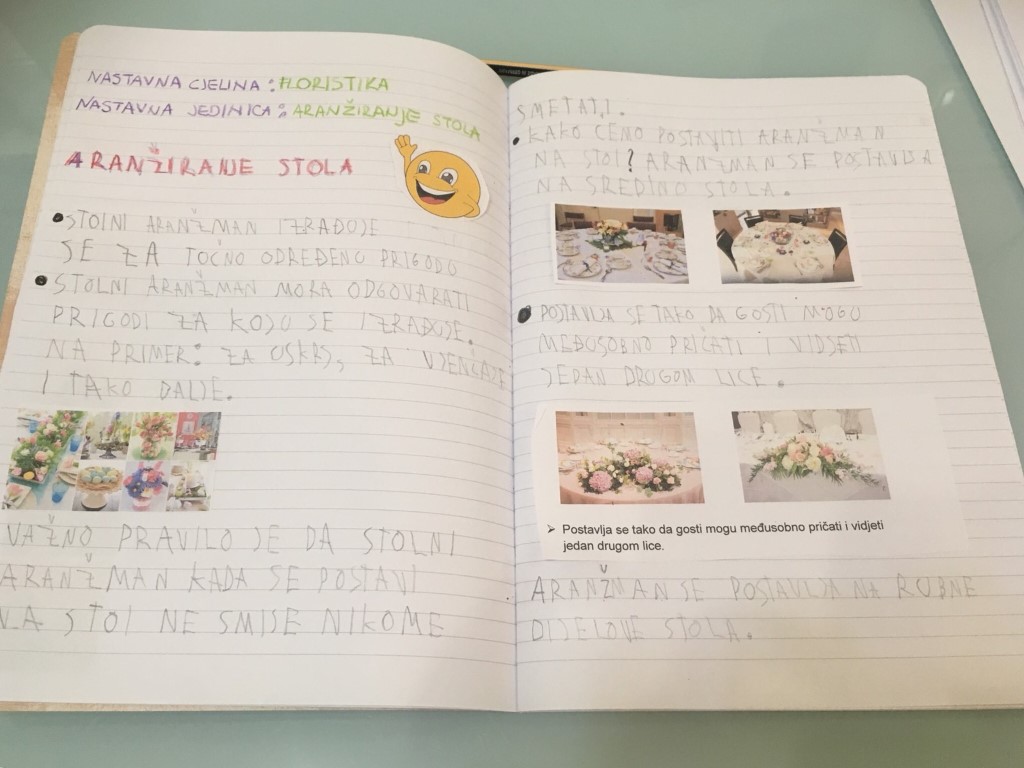 NASTAVNA CJELINA: FLORISTIKA
NASTAVNA JEDINICA: ARANŽIRANJE STOLA
ARANŽIRANJE STOLA
• STOLNI ARANŽMAN IZRAĐUJE
SE ZA TOČNO ODREĐENU PRIGODU
• STOLNI ARANŽMAN MORA ODGOVARATI
PRIGODI ZA KOJU SE IZRAĐUJE.
NA PRIMER: ZA USKRS, ZA VJENČAJE
I TAKO DALJE.
VAŽNO PRAVILO JE DA STOLNI
ARANŽMAN KADA SE POSTAVI
NA STOL NE SMIJE NIKOME
SMETATI.
• KAKO ĆEMO POSTAVITI ARANŽMAN
NA STOL? ARANŽMAN SE POSTAVLJA
NA SREDINO STOLA.
• POSTAVLJA SE TAKO DA GOSTI MOGU
MEĐUSOBNO PRIČATI I VIDJETI
JEDAN DRUGOM LICE.
➢ Postavlja se tako da gosti mogu međusobno pričati i vidjeti
jedan drugom lice.
ARANŽMAN SE POSTAVLJA NA RUBNE
DIJELOVE STOLA.